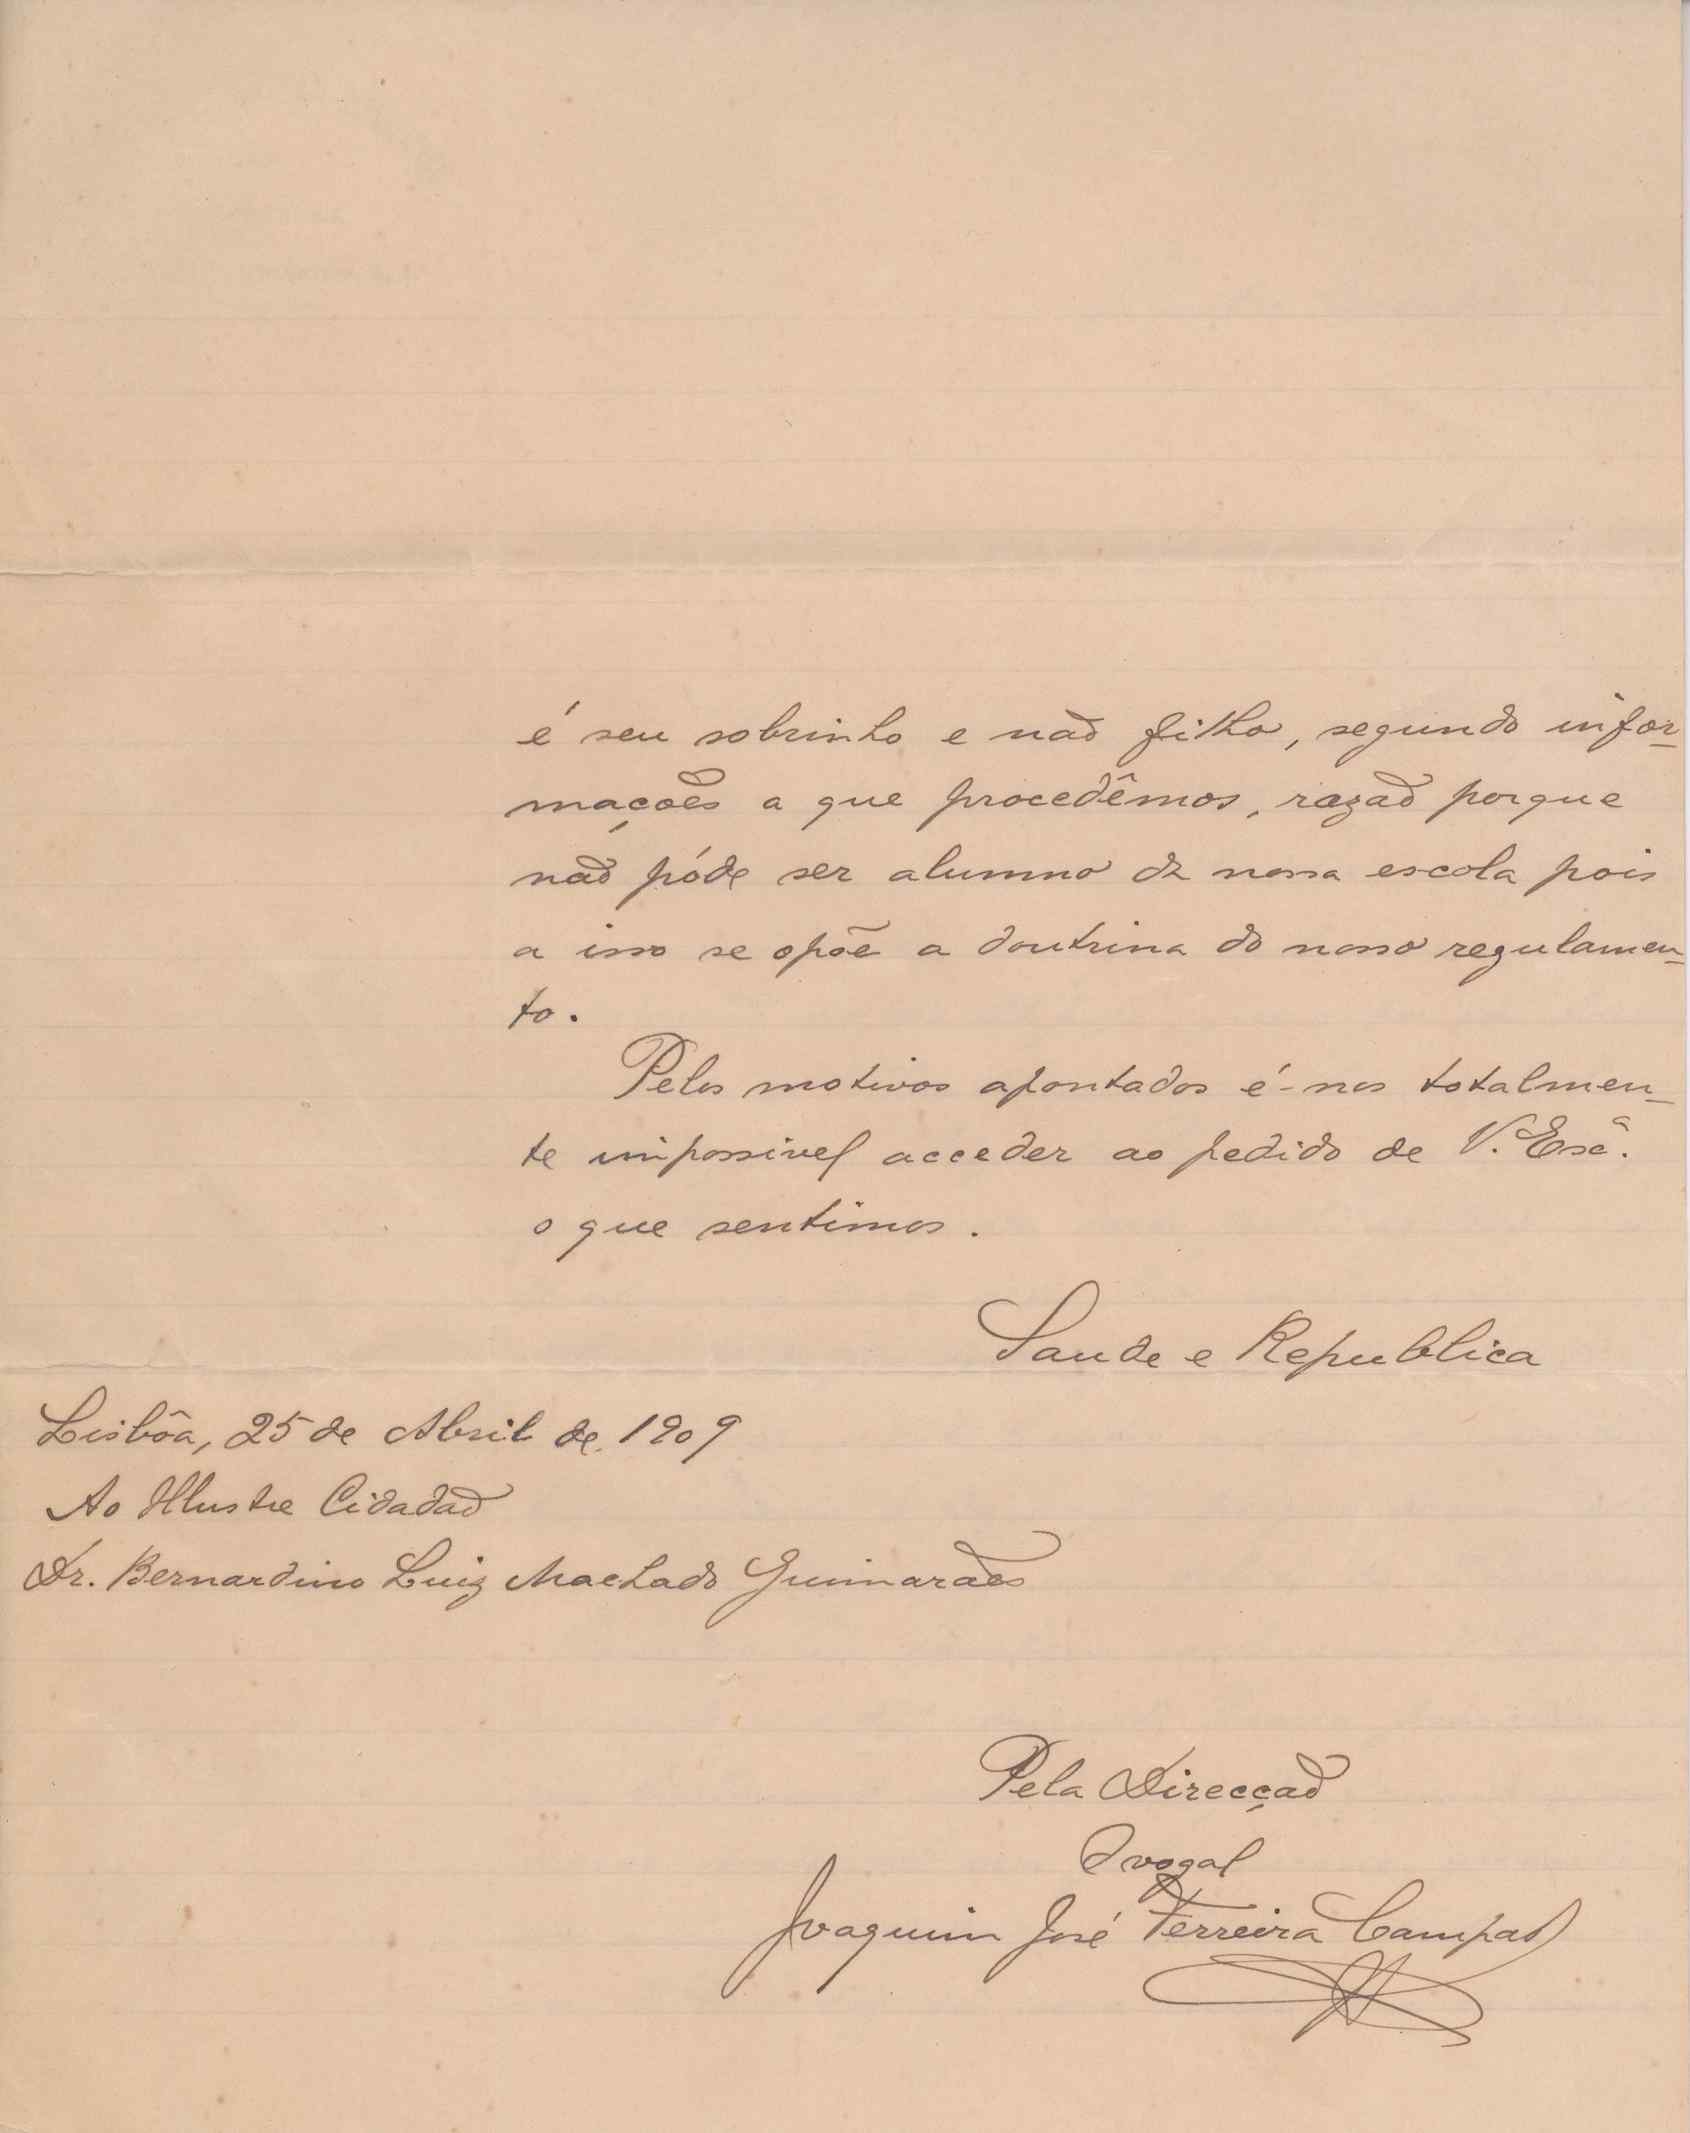 é seu sobrinho e não filho, segundo infor-
mações a que procedêmos, razão porque
não póde ser alumno da nossa escola pois
a isso se opõe a doutrina do nosso regulamen-
to.
Pelos motivos apontados é-nos totalmen-
te impossivel acceder ao pedido de V. Exª.
o que sentimos.
Saude e Republica
Lisbôa, 25 de Abril de 1909
Ao Illustre Cidadão
Dr. Bernardino Luiz Machado Guimarães
Pela Direcção
O vogal
Joaquim José Ferreira Campos